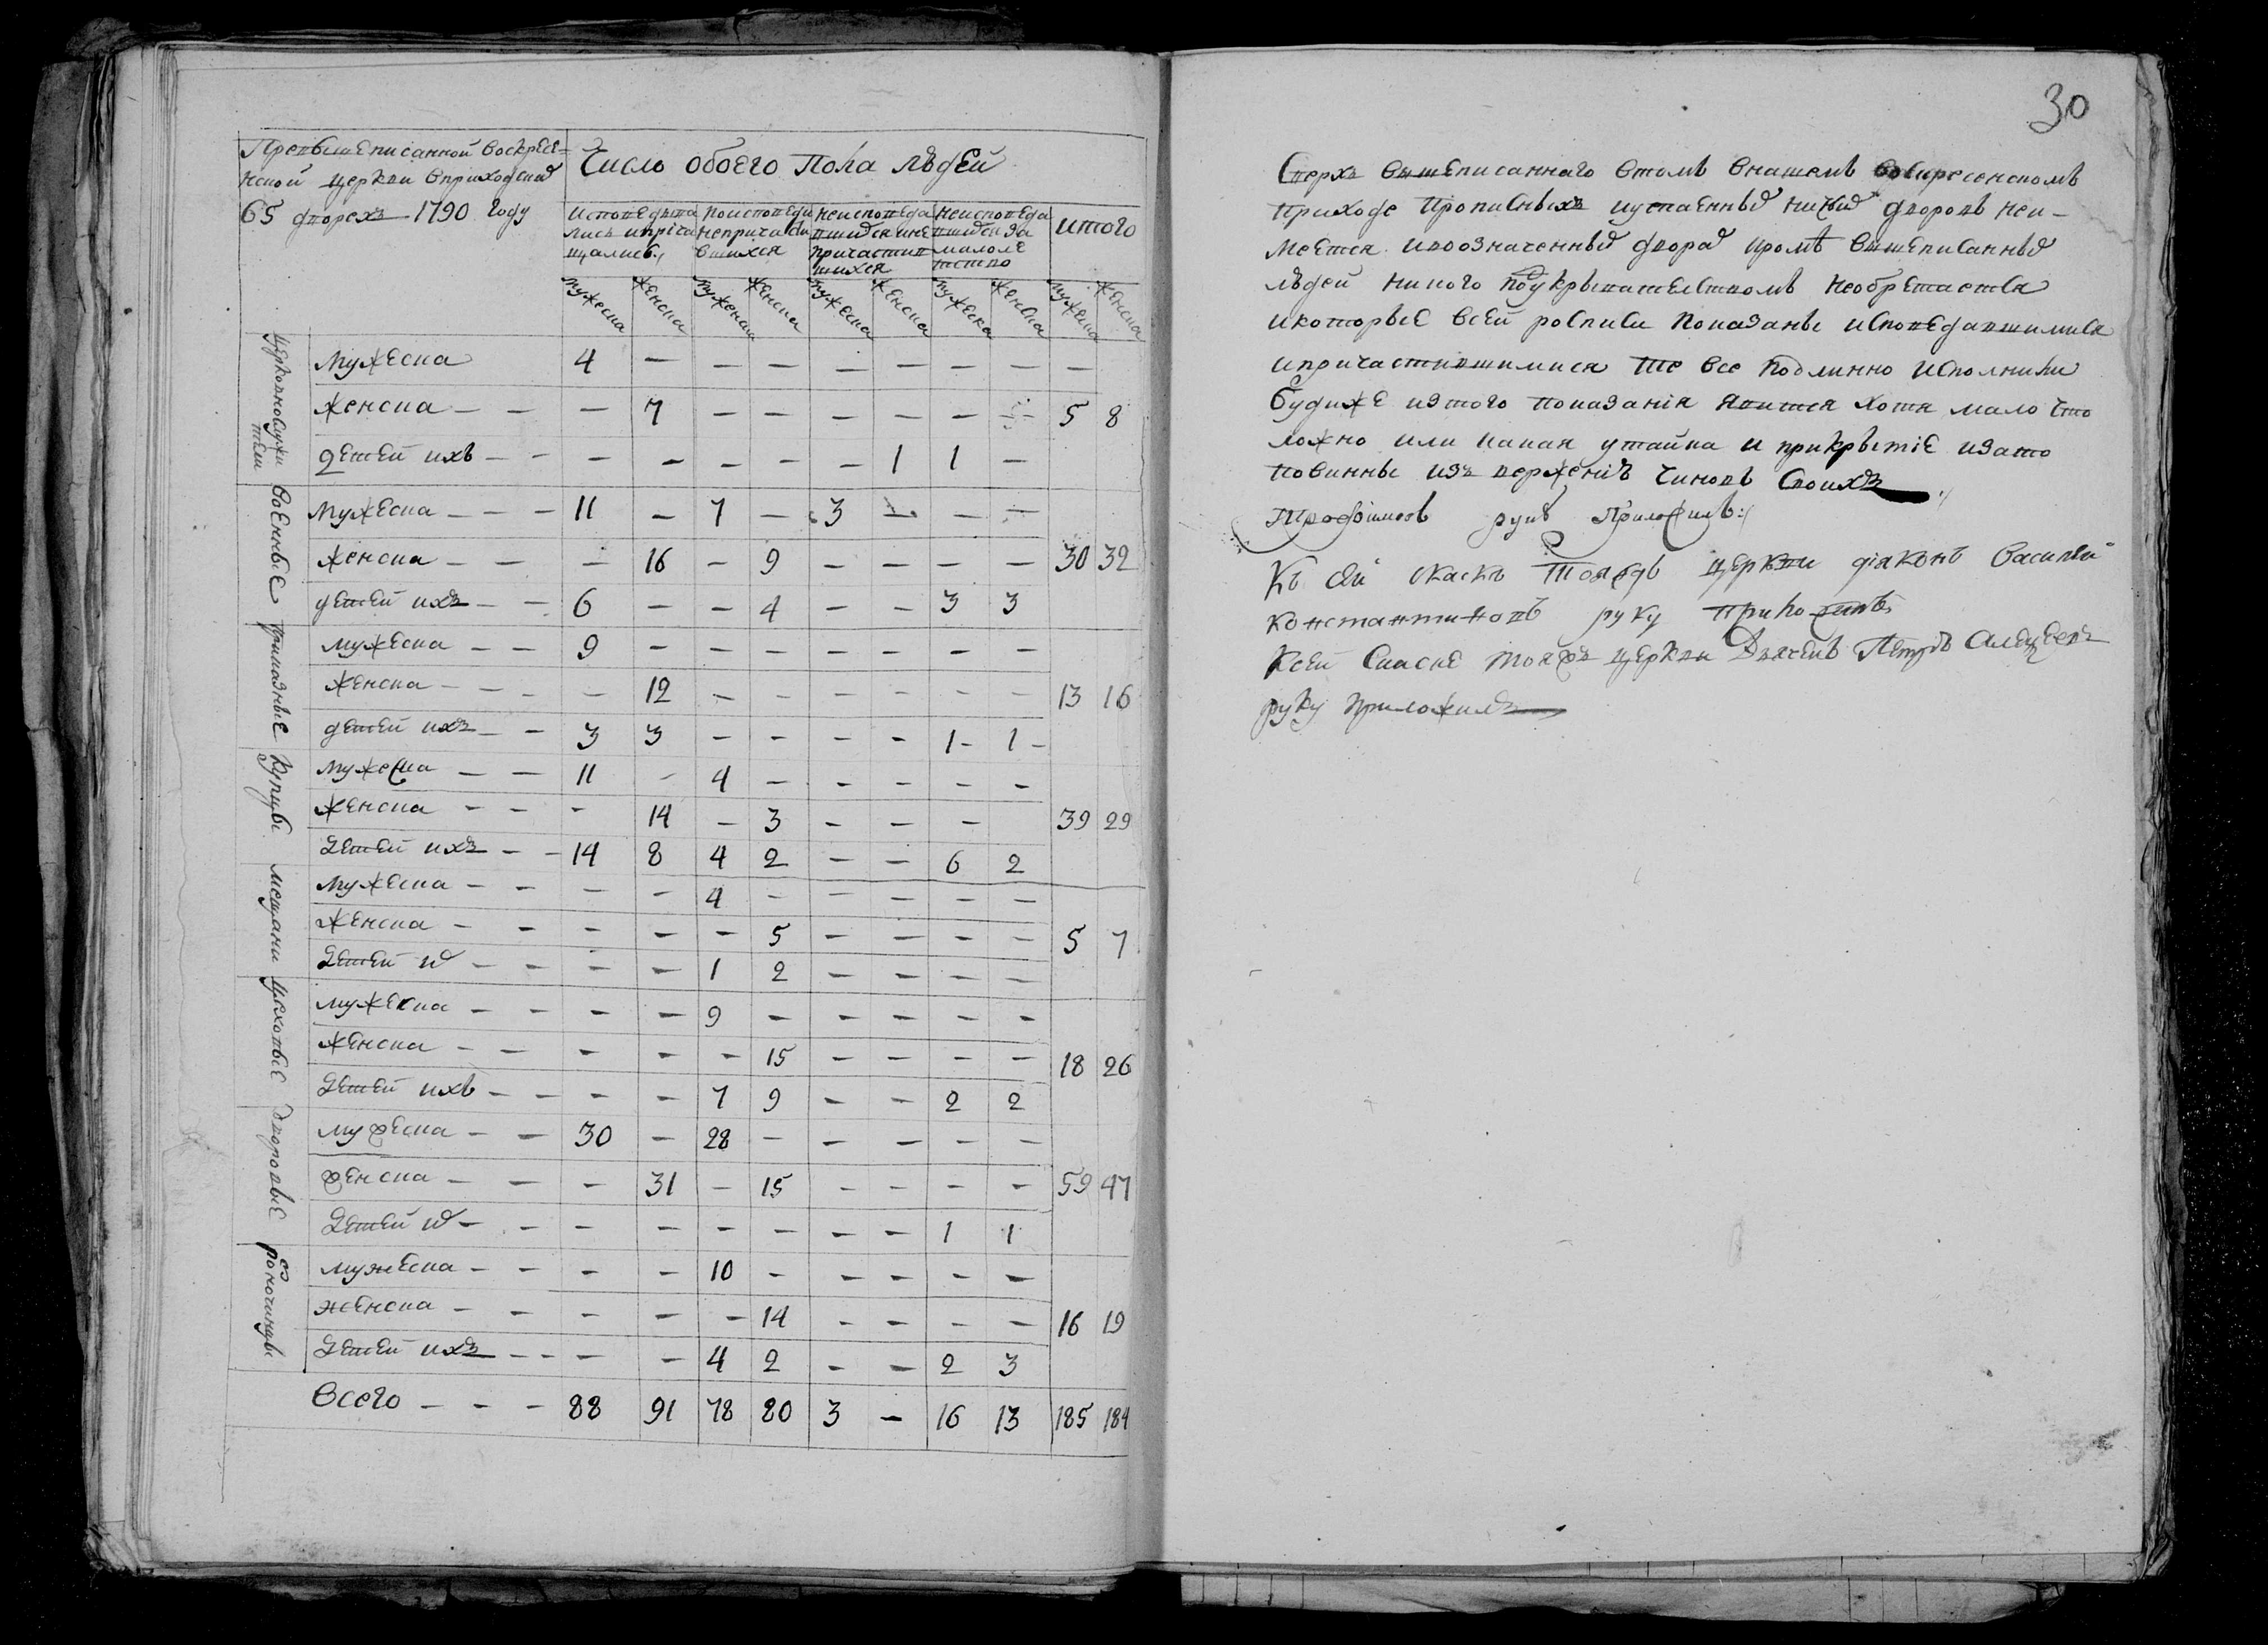 Превышеписанной воскресе-
нской церкви вприходскид
65 дворехъ 1790 году
Число обоего пола людей
исповедыва
лись ипрiча
щались
поисповеди
непричасти
вшихся
неисповеда
вшихся ине
причастив
шихся
неисповеда
вшихся за
малоле
тство
итого
мужеска женска мужеска женска мужеска женска мужеска женска мужеска женска
церковнослужи
тели
мужеска 4 — — — — — — — —
женска — — — 7 — — — — — — 5 8
детей ихъ — — — — — — — 1 1 —
военные
мужеска — — — 11 — 7 — 3 — — —
женска — — — 16 — 9 — — — — 30 32
детей ихъ — — 6 — — 4 — — 3 3
приказные
мужеска — — 9 — — — — — — —
женска — — — 12 — — — — — — 13 16
детей ихъ — — 3 3 — — — — 1 — 1 —
купцы
мужеска — — 11 — 4 — — — — —
женска — — — 14 — 3 — — — 39 29
детей ихъ — — 14 8 4 2 — — 6 2
мещани
мужеска — — — — 4 — — — — —
женска — — — — — 5 — — — — 5 7
детей их — — — — 1 2 — — — —
цеховые
мужеска — — — — 9 — — — — —
женска — — — — — 15 — — — — 18 26
детей ихъ — — — — 7 9 — — 2 2
дворовые
мужеска — — 30 — 28 — — — — —
женска — — — 31 — 15 — — — — 59 47
детей их — — — — — — — — 1 1
розночинцы
мужеска — — — — 10 — — — — —
женска — — — — — 14 — — — — 16 19
детей ихъ — — — — 4 2 — — 2 3
всего — — — 88 91 78 80 3 — 16 13 185 184
30
Сверхъ вышеписаннаго втомъ внашемъ воскресенскомъ
приходе прописныхъ иутаенных ничьих дворовъ неи-
меется ивоозначенных дворах кромѣ вышеписанных
людей никого подукрывателством необретается
икоторые всей росписи показаны исповедавшимися
ипричастившимися те все подлинно исполнили
будиже изтого показанiя явится хотя мало что
ложно или какая утайка и прикрытiе изато
повинны изъ вержению чиновъ своихъ
Трофимовъ руку приложилъ
Къ сей скаскъ тояжъ церкви дiяконъ василей
константиновъ руку приложилъ
ксей скаске тояжъ церкви дьячекъ Петръ алексеевъ
руку приложилъ